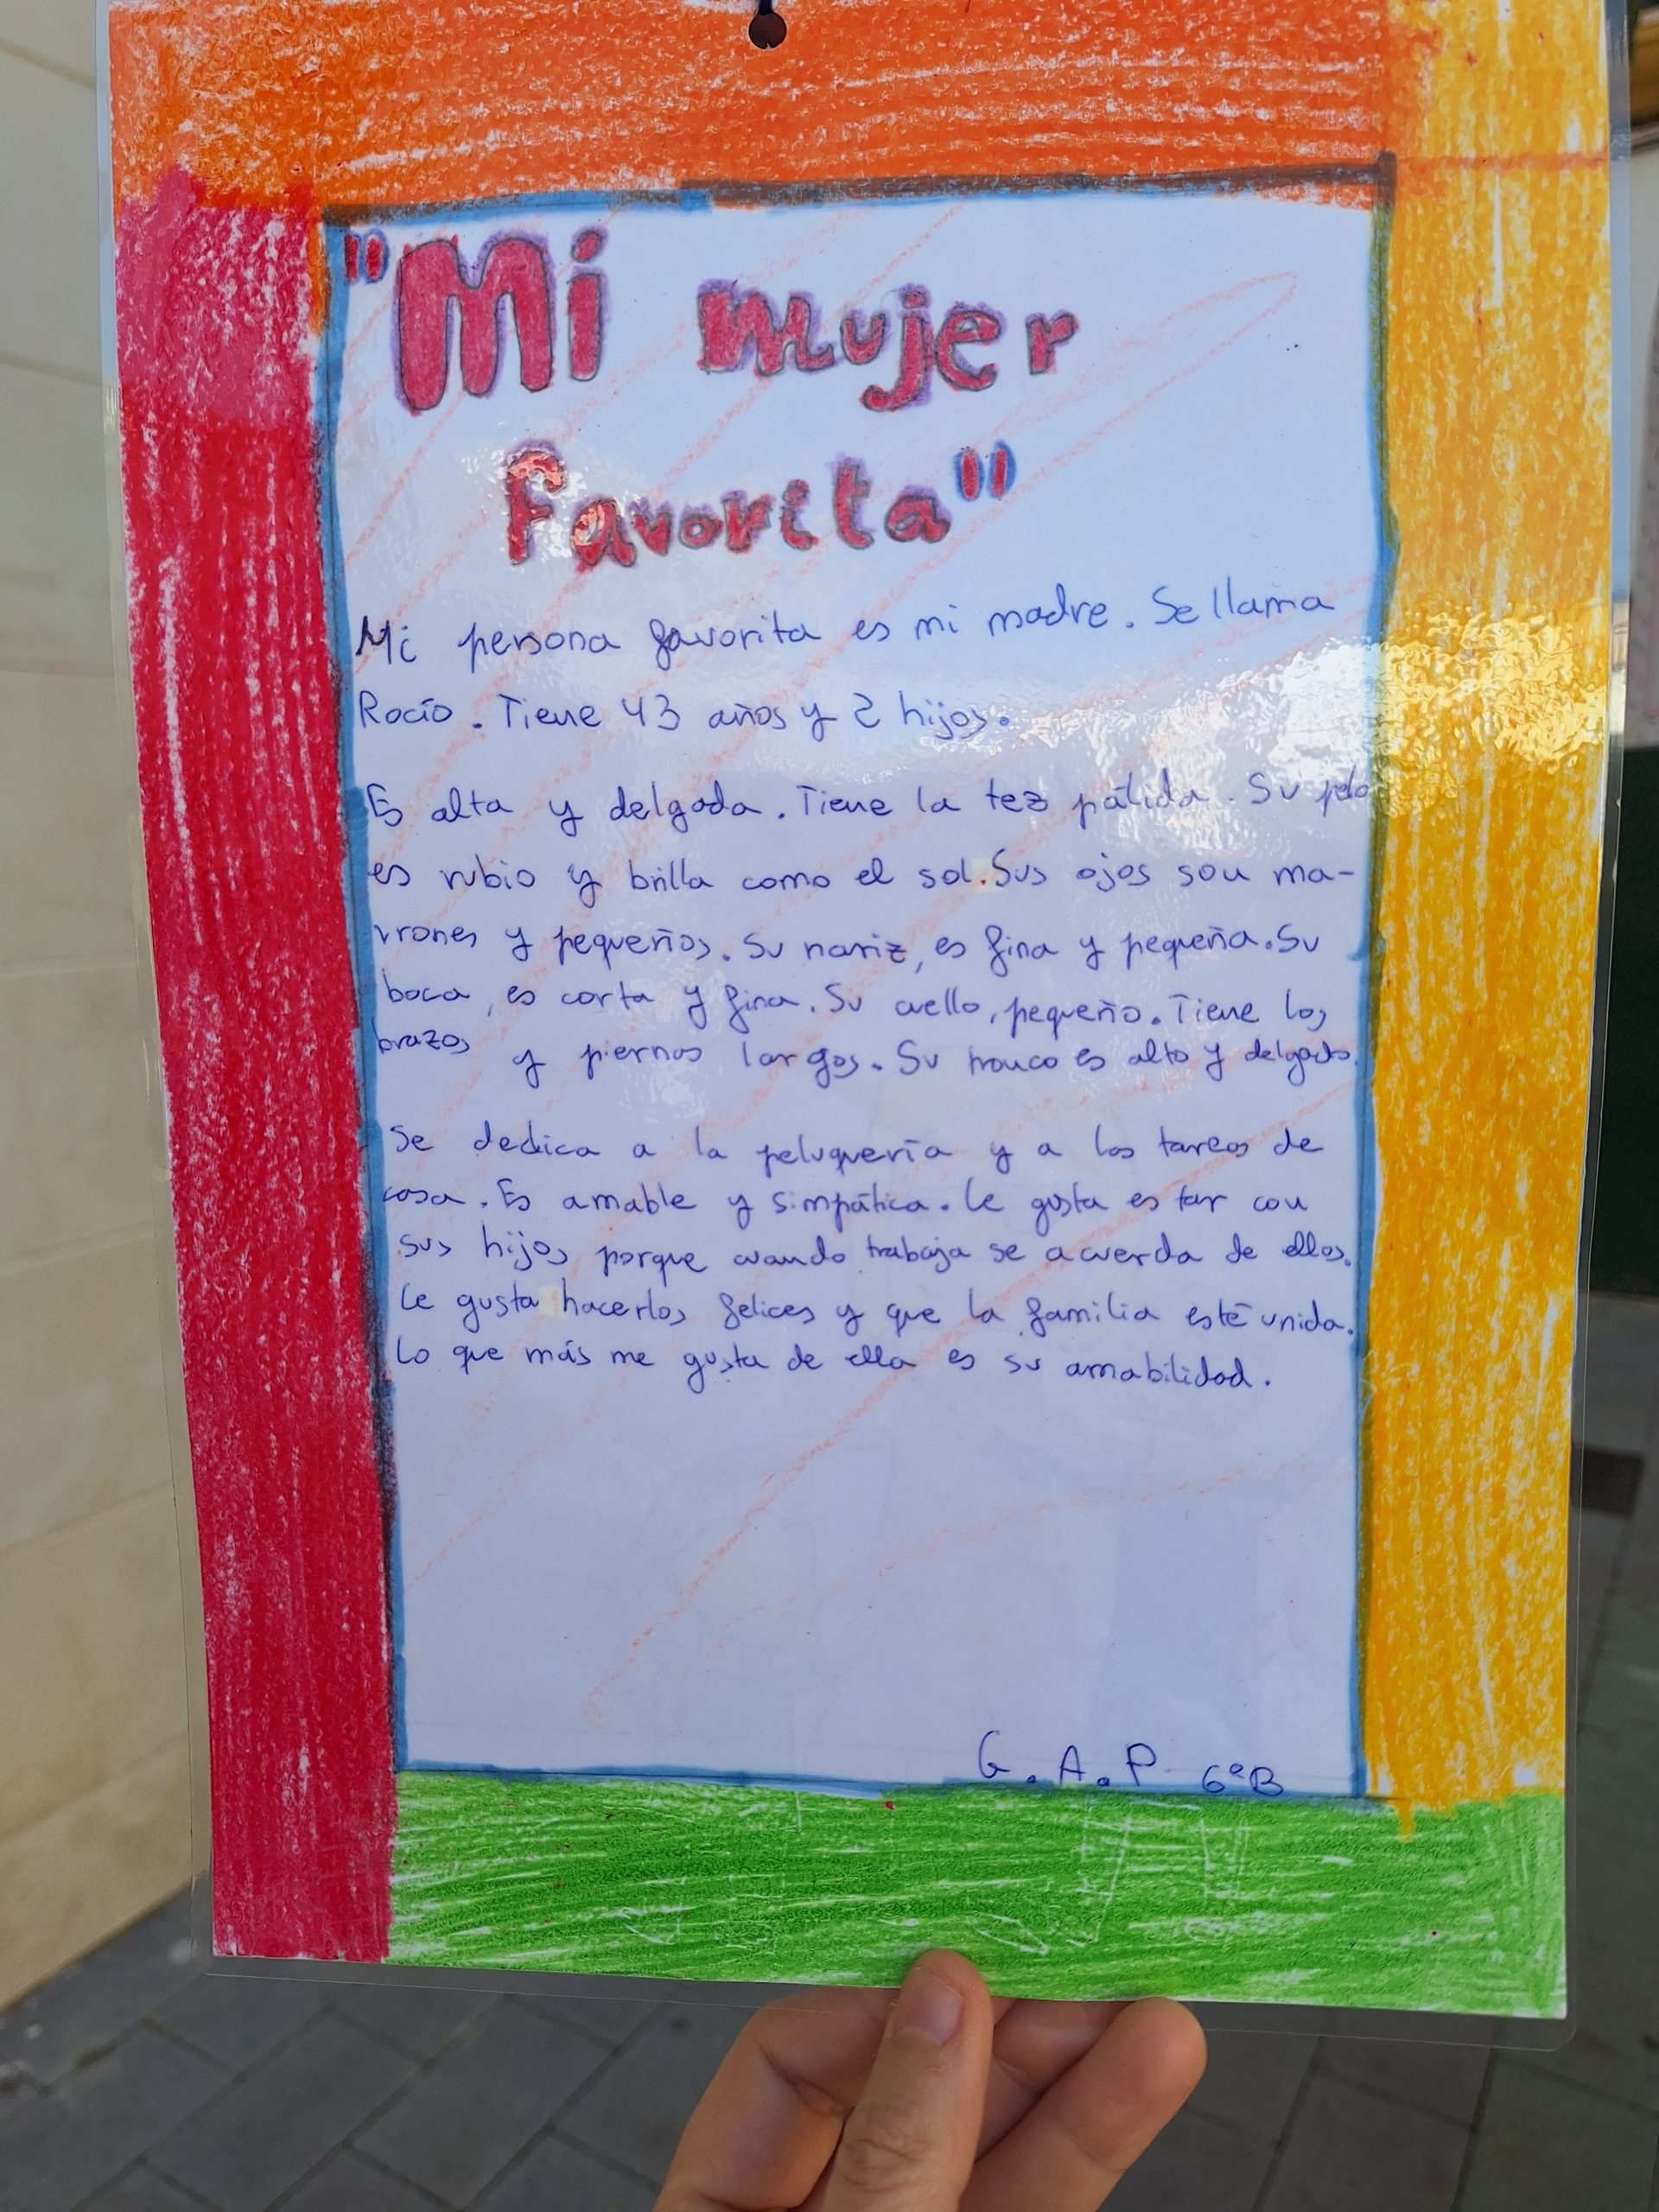 "Mi mujer
favorita"
Mi persona favorita es mi madre. Se llama
Rocío. Tiene 43 años y 2 hijos.
Es alta y delgada. Tiene la tez pálida. Su pelo
es rubio y brilla como el sol. Sus ojos son ma-
rrones y pequeños. Su nariz, es fina y pequeña. Su
boca, es corta y fina. Su cuello, pequeño. Tiene los
brazos y piernas largos. Su tronco es alto y delgado.
Se dedica a la peluquería y a las tareas de
casa. Es amable y simpática. Le gusta estar con
sus hijos porque cuando trabaja se acuerda de ellos.
Le gusta hacerlos felices y que la familia esté unida.
Lo que más me gusta de ella es su amabilidad.
G.A.P 6ºB